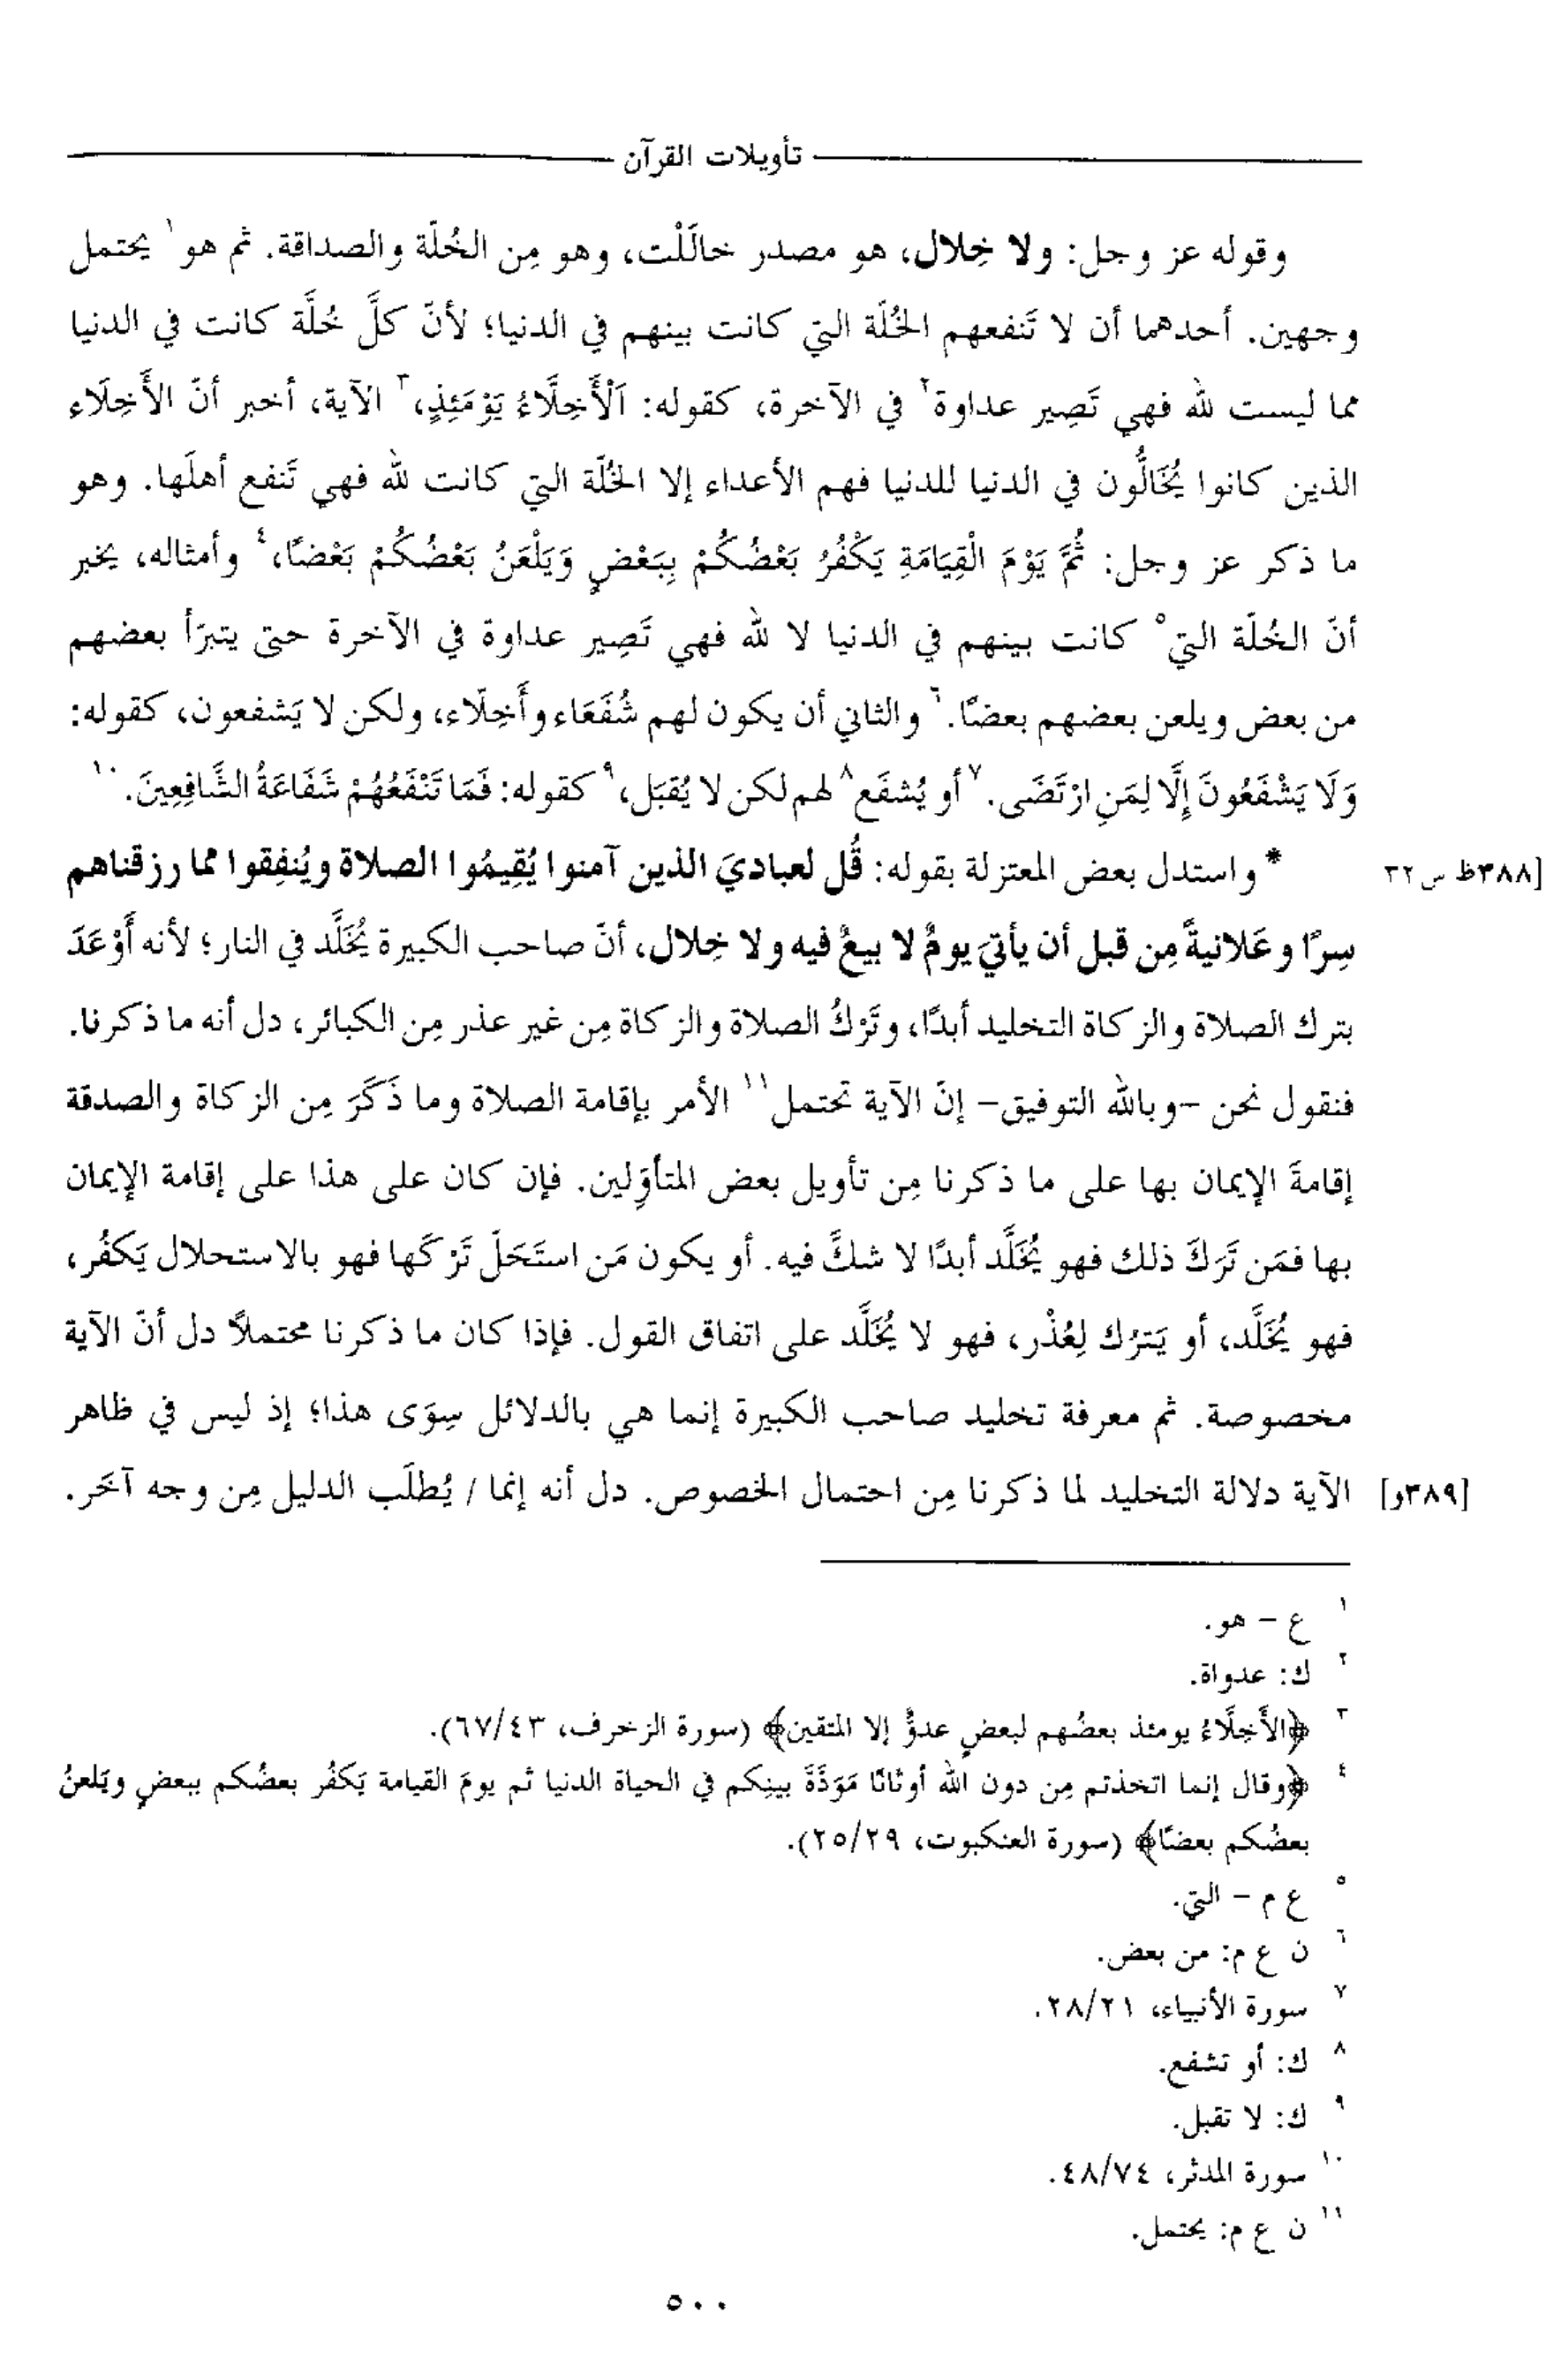 تأويلات القرآن
وقوله عز وجل: ولا خِلال، هو مصدر خالَلْت، وهو مِن الخُلّة والصداقة. ثم هو١ يحتمل
وجهين. أحدهما أن لا تَنفعهم الخُلّة التي كانت بينهم في الدنيا؛ لأنّ كلَّ خُلَّة كانت في الدنيا
مما ليست لله فهي تَصِير عداوة٢ في الآخرة، كقوله: اَلْأَخِلَّاءُ يَوْمَئِذٍ،٣ الآية، أخبر أنّ الأَخِلَاء
الذين كانوا يُخَالُّون في الدنيا للدنيا فهم الأعداء إلا الخُلّة التي كانت لله فهي تَنفع أهلَها. وهو
ما ذكر عز وجل: ثُمَّ يَوْمَ الْقِيَامَةِ يَكْفُرُ بَعْضُكُمْ بِبَعْضٍ وَيَلْعَنُ بَعْضُكُمْ بَعْضًا،٤ وأمثاله، يخبر
أنّ الخُلّة التي٥ كانت بينهم في الدنيا لا لله فهي تَصِير عداوة في الآخرة حتى يتبرّأ بعضهم
من بعض ويلعن بعضهم بعضًا.٦ والثاني أن يكون لهم شُفَعَاء وأَخِلّاء، ولكن لا يَشفعون، كقوله:
وَلَا يَشْفَعُونَ إِلَّا لِمَنِ ارْتَضَى.٧ أو يُشفَع٨ لهم لكن لا يُقبَل،٩ كقوله: فَمَا تَنْفَعُهُمْ شَفَاعَةُ الشَّافِعِينَ.١٠
[٣٨٨ظ س٣٢ *واستدل بعض المعتزلة بقوله: قُل لعباديَ الذين آمنوا يُقِيمُوا الصلاة ويُنفِقوا مما رزقناهم
سِرًا وعَلانيةً مِن قبل أن يأتيَ يومٌ لا بيعٌ فيه ولا خِلال، أنّ صاحب الكبيرة يُخَلَّد في النار؛ لأنه أَوْعَدَ
بترك الصلاة والزكاة التخليد أبدًا، وتَرْكُ الصلاة والزكاة مِن غير عذر مِن الكبائر، دل أنه ما ذكرنا.
فنقول نحن -وبالله التوفيق- إنّ الآية تحتمل١١ الأمر بإقامة الصلاة وما ذَكَرَ مِن الزكاة والصدقة
إقامةَ الإيمان بها على ما ذكرنا مِن تأويل بعض المتأوِّلين. فإن كان على هذا على إقامة الإيمان
بها فمَن تَرَكَ ذلك فهو يُخَلَّد أبدًا لا شكَّ فيه. أو يكون مَن استَحَلّ تَرْكَها فهو بالاستحلال يَكفُر،
فهو يُخَلَّد، أو يَترُك لِعُذْر، فهو لا يُخَلَّد على اتفاق القول. فإذا كان ما ذكرنا محتملاً دل أنّ الآية
مخصوصة. ثم معرفة تخليد صاحب الكبيرة إنما هي بالدلائل سِوَى هذا؛ إذ ليس في ظاهر
[٣٨٩و] الآية دلالة التخليد لما ذكرنا مِن احتمال الخصوص. دل أنه إنما / يُطلَب الدليل مِن وجه آخَر.
١ ع - هو.
٢ ك: عدواة.
٣ ﴿الأَخِلَّاءُ يومئذ بعضُهم لبعضٍ عدوٌّ إلا المتقين﴾ (سورة الزخرف، ٦٧/٤٣).
٤ ﴿وقال إنما اتخذتم مِن دون الله أوثانًا مَوَدَّةَ بينِكم في الحياة الدنيا ثم يومَ القيامة يَكفُر بعضُكم ببعضٍ ويَلعنُ
بعضُكم بعضًا﴾ (سورة العنكبوت، ٢٥/٢٩).
٥ ع م - التي.
٦ ن ع م: من بعض.
٧ سورة الأنبياء، ٢٨/٢١.
٨ ك: أو تشفع.
٩ ك: لا تقبل.
١٠ سورة المدثر، ٤٨/٧٤.
١١ ن ع م: يحتمل.
٥٠٠